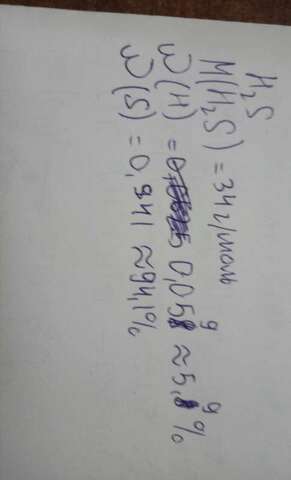 H₂S
M(H₂S) = 34 г/моль
W(H) = 0,059 ≈ 5,9%
W(S) = 0,941 ≈ 94,1%